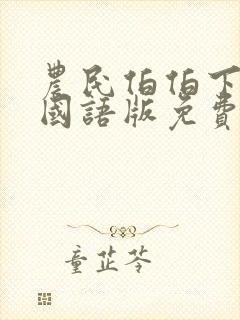 農民伯伯下
國語版免費
童芷苓